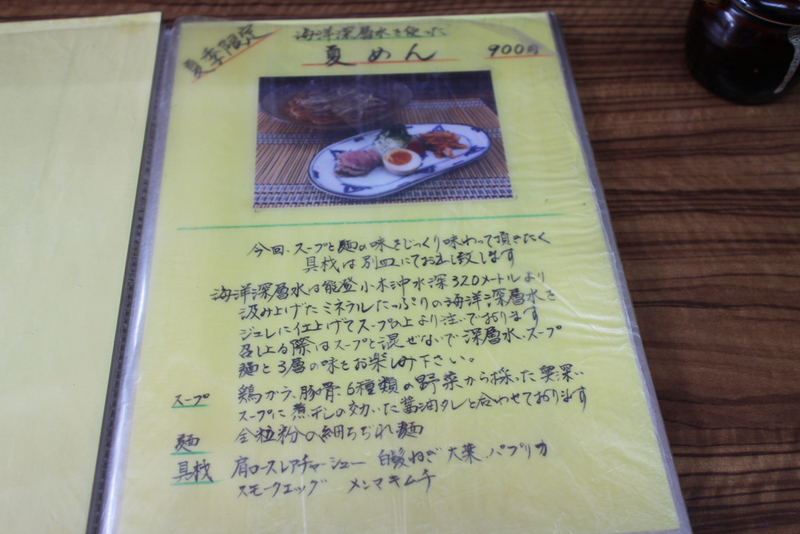 夏季限定
海洋深層水を使った
夏めん 900円
今回、スープと麺の味をじっくり味わって頂きたく
具材は別皿にてお出し致します
海洋深層水は能登小木沖水深320メートルより
汲み上げたミネラルたっぷりの海洋深層水を
ジュレに仕上げてスープの上より注いでおります
召し上る際はスープと混ぜないで深層水、スープ
麺と3層の味をお楽しみ下さい。
スープ 鶏ガラ、豚骨、6種類の野菜から採った奥深い
スープに煮干しの効いた醤油タレと合わせております
麺 全粒粉の細ちぢれ麺
具材 肩ロースレアチャーシュー 白髪ねぎ 大葉 パプリカ
スモークエッグ メンマキムチ